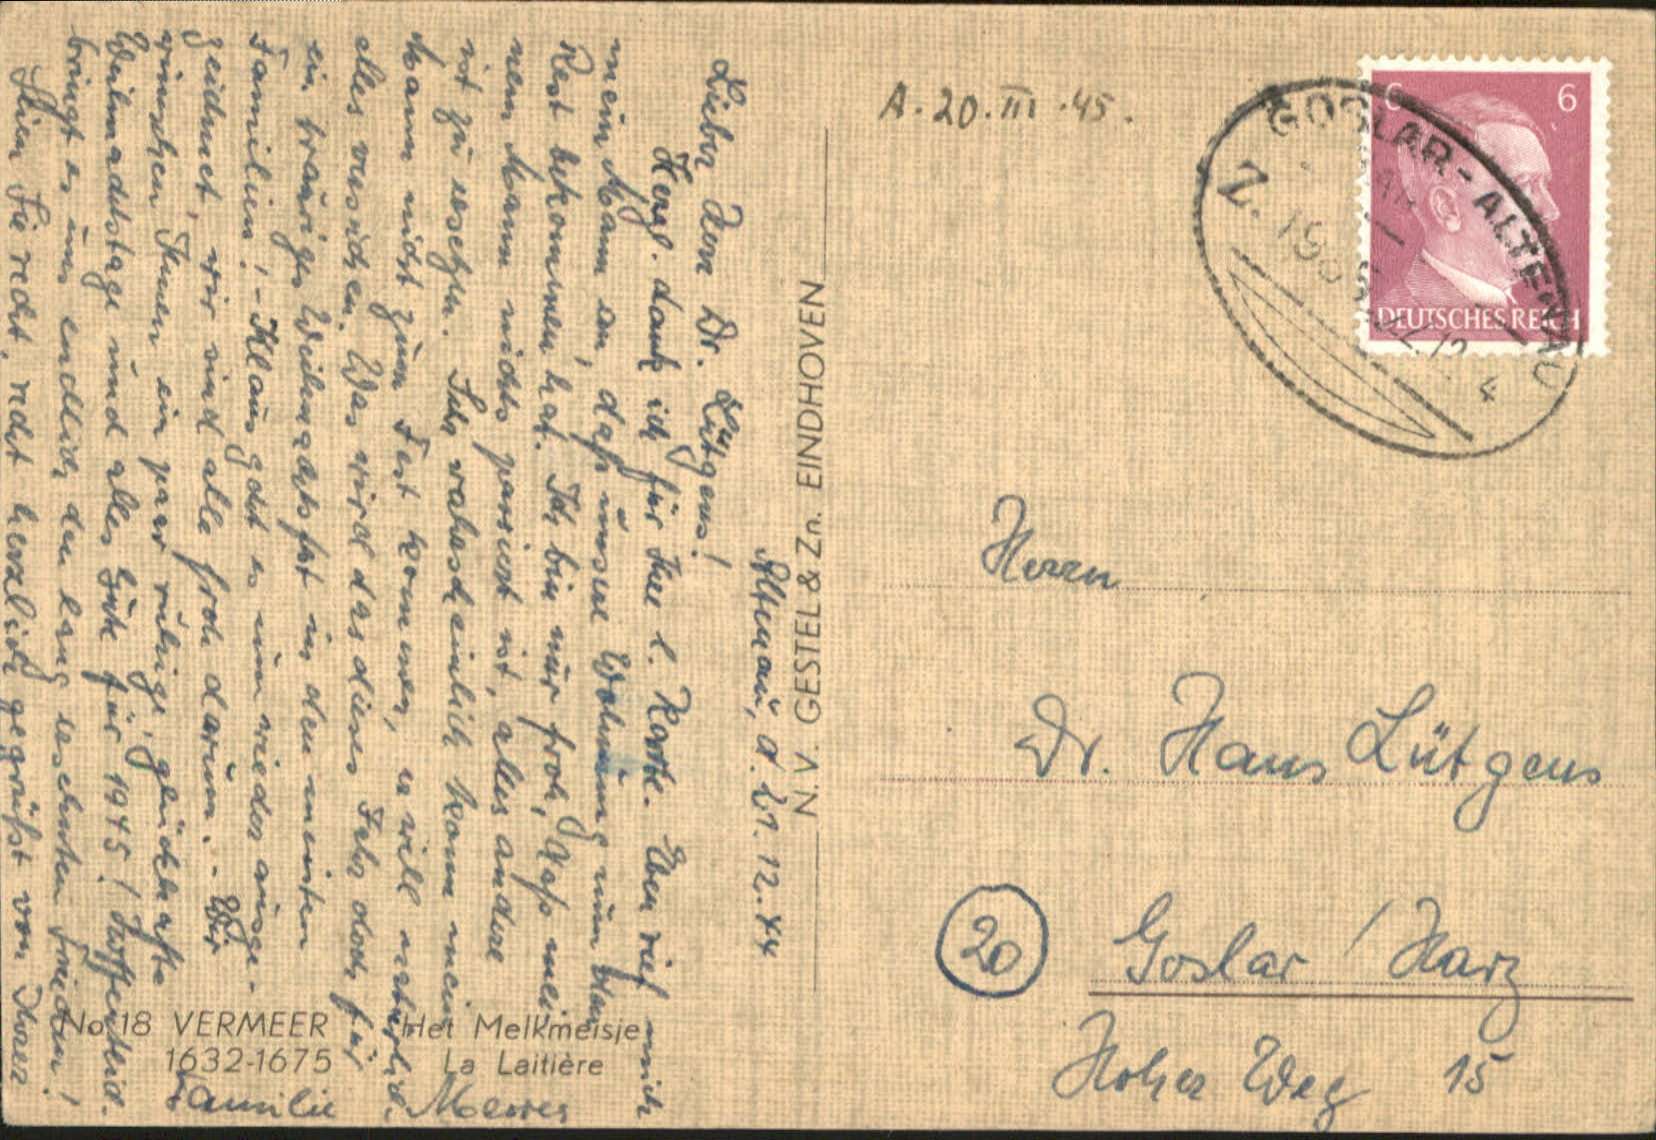 A. 20. III. 45.
6 6
DEUTSCHES REICH
GOSLAR - ALTENAU
Z.
Altenau, d. 21.12.44
Lieber Herr Dr. Lütgens!
Herzl. dank ich für Ihre l. Karte. Eben rief mich
mein Mann an, daß unsere Wohnung nun den
Rest bekommen hat. Ich bin nur froh, daß mei-
nem Mann nichts passiert ist, alles andere
ist zu ersetzen. Sehr wahrscheinlich kann mein
Mann nicht zum Fest kommen, er will natürlich
alles versuchen. Was wird das dieses Jahr doch für
ein trauriges Weihnachtsfest in den meisten
Familien! - Klaus geht es nun wieder ausge-
zeichnet, wir sind alle froh darum. - Wir
wünschen Ihnen ein paar ruhige, glückhafte
Weihnachtstage und alles Gute für 1945! Hoffentlich
bringt es uns endlich den lang ersehnten Frieden!
Seien Sie recht, recht herzlich gegrüßt von Ihrer
Familie
N.V. GESTEL & Zn. EINDHOVEN
No 18 VERMEER Het Melkmeisje
1632-1675 La Laitière
Herrn
Dr. Hans Lütgens
20 Goslar / Harz
Hoher Weg 15